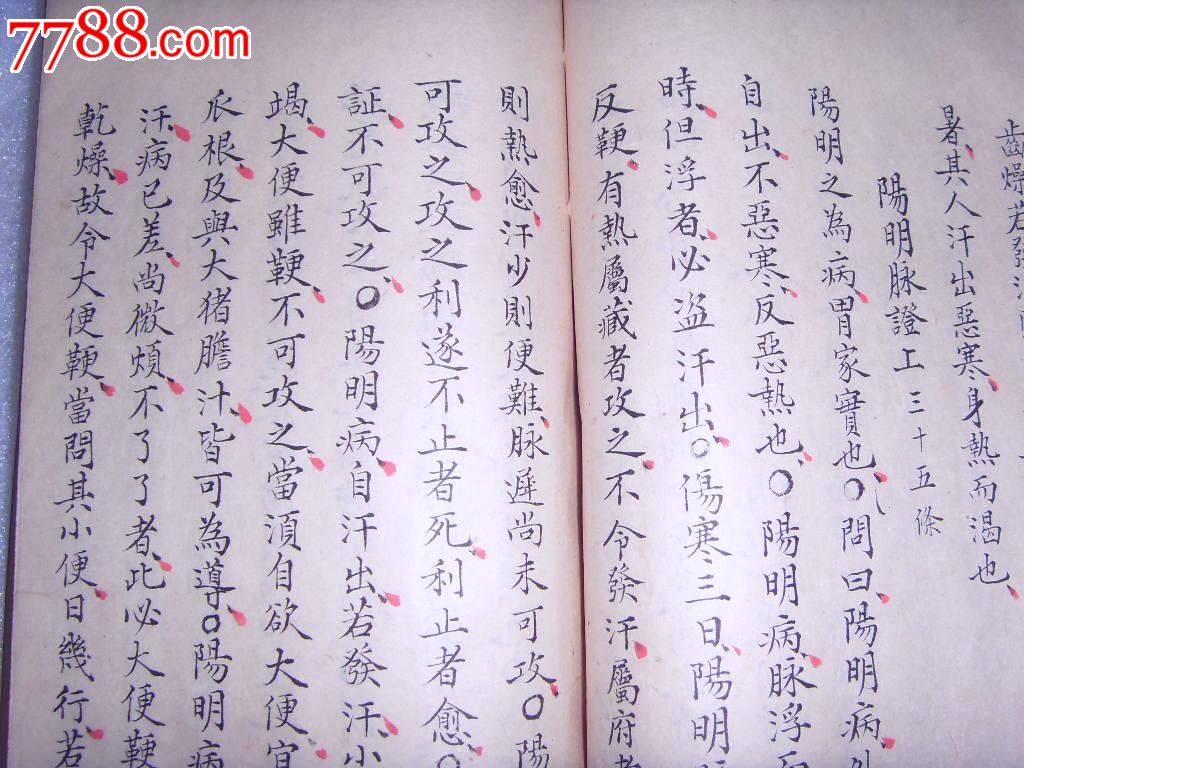 7788.com
齒燥若發汗
暑、其人汗出惡寒、身熱而渴也、
陽明脉證上 三十五條
陽明之為病、胃家實也、○問曰、陽明病、外
自出、不惡寒、反惡熱也、○陽明病、脉浮而
時、但浮者、必盗汗出、○傷寒三日、陽明
反鞕、有熱屬藏者攻之、不令發汗、屬府者
則熱愈、汗少則便難、脉遲尚未可攻、○陽
可攻之、攻之利遂不止者死、利止者愈、○
証、不可攻之、○陽明病、自汗出、若發汗、小
竭、大便雖鞕、不可攻之、當須自欲大便、宜
瓜根、及與大猪膽汁、皆可為導、○陽明病
汗、病已差、尚微煩、不了了者、此必大便鞕
乾燥、故令大便鞕、當問其小便、日幾行、若